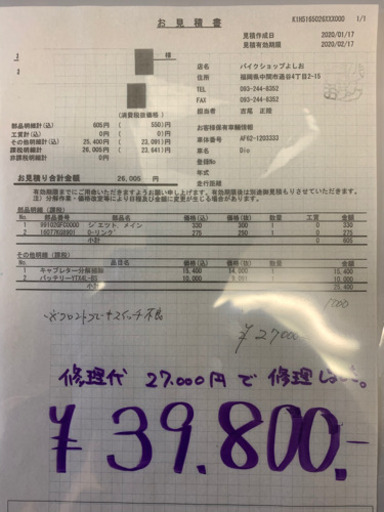 お見積書
K1HS165020XXX000 1/1
見積作成日 2020/01/17
見積有効期限 2020/02/17
様
店名 バイクショップよしお
住所 福岡県中間市通谷4丁目2-15
TEL 093-244-8352
FAX 093-244-8352
担当者
(消費税抜価格)
部品明細計(込) 605円 ( 550) 円
工賃計(込) 0円 ( 0) 円
その他明細計(込) 25,400円 ( 23,091) 円
課税明細計 26,005円 ( 23,641) 円
非課税明細計 0円
お客様保有車輌情報
車体番号 AF62-1203333
車名 Dio
登録No
年式
走行距離
お見積り合計金額 26,005 円
有効期限までにご用命いただきますようお願いいたします。有効期限後は別途御見積もりさせていただきます。
注) 分解作業・工程等により項目及び金額に変更が生じる場合があります。
部品明細 (課税)
No. 部品番号 部品名 価格(込) 価格(抜) 数量 工賃 金額
1 99102GFC0000 ジェット, メイン 330 300 1 0 330
2 16077638901 O-リング 275 250 1 0 275
小計 0 605
その他明細 (課税)
No. 品目名 価格(込) 価格(抜) 数量 金額
1 キャブレター分解掃除 15,400 14,000 1 15,400
2 バッテリーYTX4L-BS 10,000 9,091 1 10,000
小計 25,400
※フロントブレーキスイッチ不良
¥27000
修理代 27.000円で修理しました。
¥39.800.-